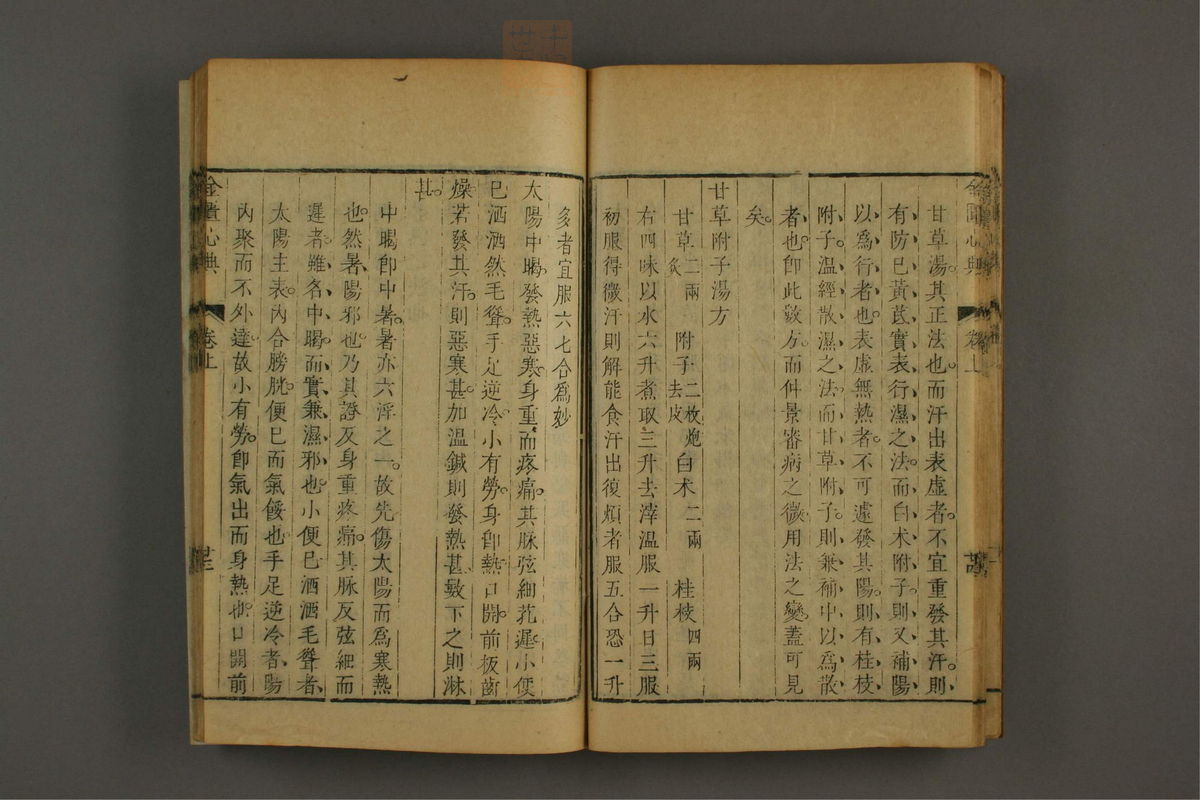 甘草湯其正法也而汗出表虛者不宜重發其汗則
有防巳黃芪實表行濕之法而白术附子則又補陽
以爲行者也表虛無熱者不可遽發其陽則有桂枝
附子溫經散濕之法而甘草附子則兼補中以爲散
者也卽此數方而仲景審病之微用法之變蓋可見
矣
甘草附子湯方
甘草二兩炙 附子二枚炮去皮 白术二兩 桂枝四兩
右四味以水六升煮取三升去滓溫服一升日三服
初服得微汗則解能食汗出復煩者服五合恐一升
多者宜服六七合爲妙
太陽中暍發熱惡寒身重而疼痛其脉弦細芤遲小便
巳洒洒然毛聳手足逆冷小有勞身卽熱口開前板齒
燥若發其汗則惡寒甚加溫鍼則發熱甚數下之則淋
甚
中暍卽中暑暑亦六淫之一故先傷太陽而爲寒熱
也然暑陽邪也乃其證反身重疼痛其脉反弦細而
遲者雖名中暍而實兼濕邪也小便巳洒洒毛聳者
太陽主表內合膀胱便巳而氣餒也手足逆冷者陽
內聚而不外達故小有勞卽氣出而身熱也口開前
金匱心典 卷上 廿三